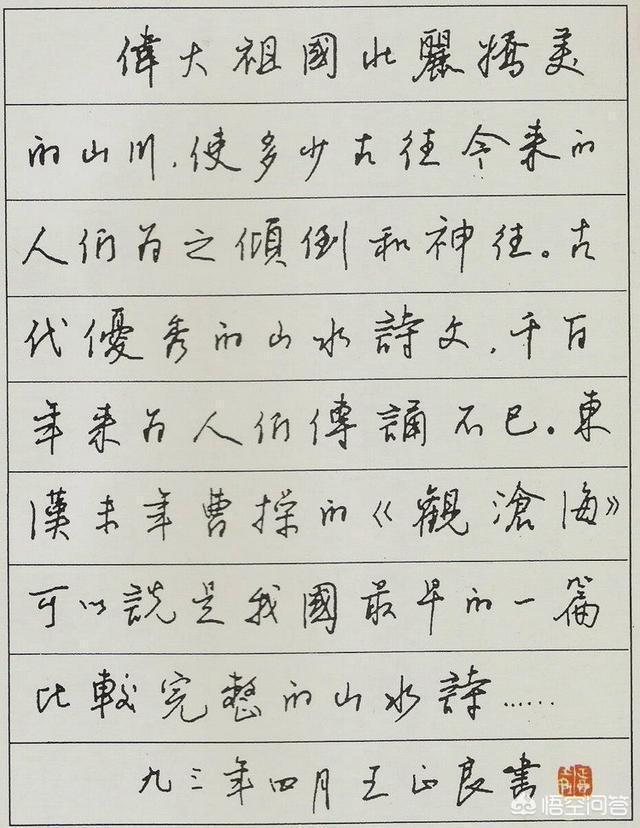 偉大祖國壯麗嬌美
的山川,使多少古往今来的
人們为之傾倒和神往。古
代優秀的山水詩文,千百
年来为人們傳誦不已。東
漢末年曹操的《觀滄海》
可以説是我國最早的一篇
比較完整的山水詩……
九三年四月王正良書
悟空问答